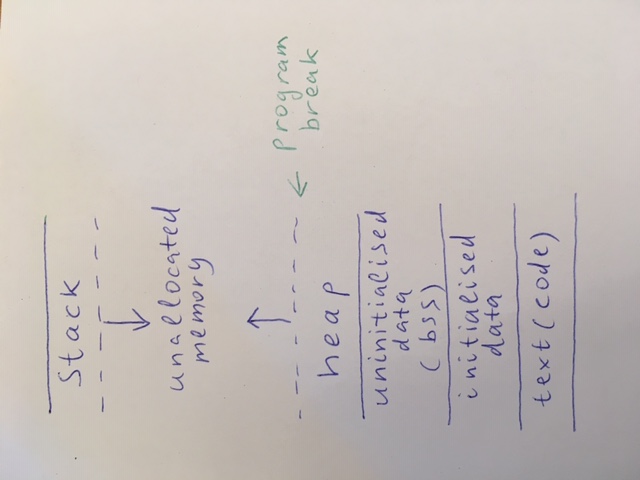 Stack
unallocated
memory
program
break
heap
uninitialised
data
(bss)
initialised
data
text(code)